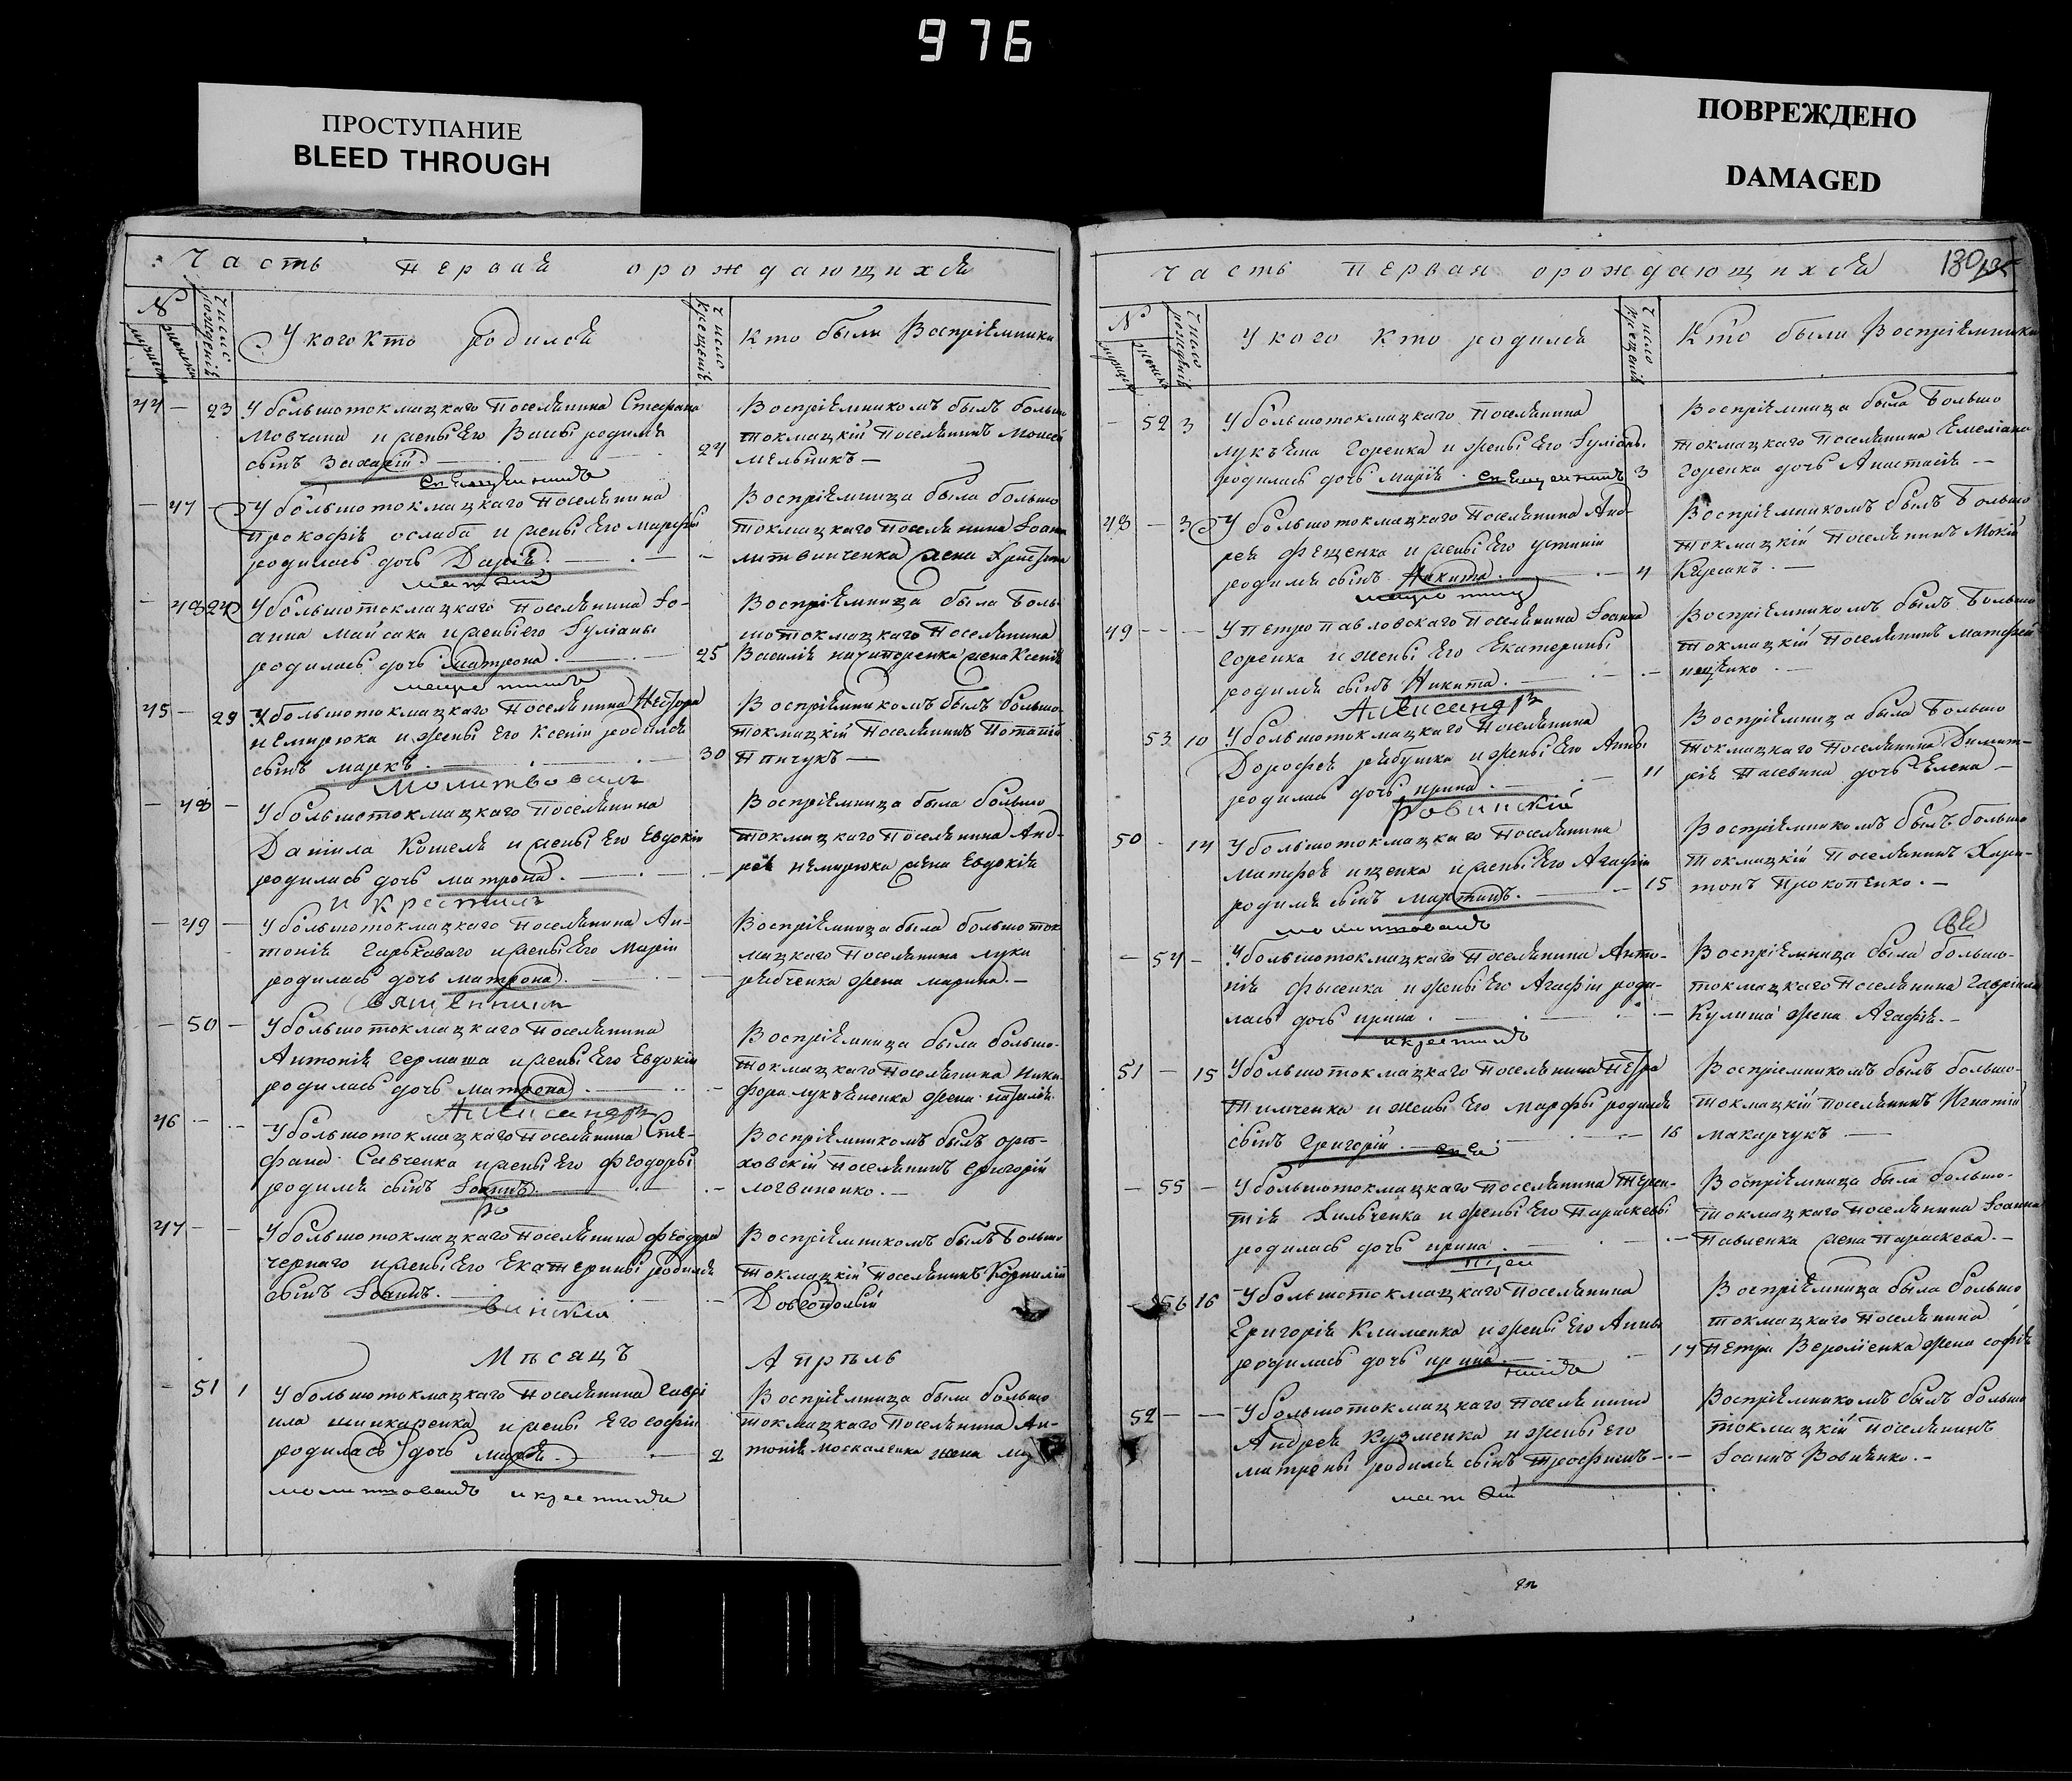 976
ПРОСТУПАНИЕ
BLEED THROUGH
ПОВРЕЖДЕНО
DAMAGED
Часть первая ораждающихся
№
У кого кто родился
Число крещенія
Кто были Воспріемники
44 — 23 У большотокмацкаго поселянина Стефана
Мовчана и жены его
сынъ Захарій.
24
Воспріемникомъ былъ больше
токмацкій поселянинъ Моисей
Мельникъ —
священникъ
— 47 — У большотокмацкаго поселянина
Прокофія ослаба и жены его Марфы
родилась дочь Дарія.
Воспріемница была больше
токмацкаго поселянина Іоанна
литвинченка жена Христина
— 48 24 У большотокмацкаго поселянина Іо-
анна Майсака и жены его Іуліаны
родилась дочь матрона.
25
Воспріемница была боль-
шотокмацкаго поселянина
Василія ничипоренка жена Ксенія
45 — 29 У большотокмацкаго поселянина Нестора
немирюка и жены его Ксеніи родился
сынъ маркъ.
30
Воспріемникомъ былъ больше-
токмацкій поселянинъ Потапій
Пинчукъ —
Молитвовалъ
— 48 — У большотокмацкаго поселянина
Даніила Кошеля и жены его Евдокіи
родилась дочь матрона.
Воспріемница была больше
токмацкаго поселянина Анд-
рея немирюка жена Евдокія
и крестилъ
— 49 — У большотокмацкаго поселянина Ан-
тонія Гарькаваго и жены его Маріи
родилась дочь матрона.
Воспріемница была большоток
мацкаго поселянина луки
рябченка жена марина. —
Священникъ
— 50 — У большотокмацкаго поселянина
Антонія Гермаша и жены его Евдокіи
родилась дочь матрона
Воспріемница была больше-
токмацкаго поселянина Ники
фора лукяненка жена
Александръ
46 — — У большотокмацкаго поселянина Сте-
фана Савченка и жены его Феодоры
родился сынъ Іоаннъ.
Воспріемникомъ былъ орѣ-
ховскій поселянинъ григорій
логвиненко. —
Ро
47 — — У большотокмацкаго поселянина Феодора
чернаго и жены его Екатерины родился
сынъ Іоаннъ.
Воспріемникомъ былъ больше
токмацкій поселянинъ Корнилій
Довгополый
винскій
Мѣсяцъ Апрѣль
— 51 1 У большотокмацкаго поселянина гаврі
ила шинкаренка и жены его софіи
родилась дочь марія.
2
Воспріемница была больше
токмацкаго поселянина Ан-
тонія москаленка жена
молитвовалъ и крестилъ
Часть первая ораждающихся 130
№
Число
У кого кто родился
Число крещенія
Кто были Воспріемники
— 52 3 У большотокмацкаго поселянина
лукьяна Горенка и жены его Іуліаны
родилась дочь марія. священникъ 3
Воспріемница была больше
токмацкаго поселянина Емеліана
Горенка дочь Анастасія —
48 — 3 У большотокмацкаго поселянина Анд-
рея Фещенка и жены его устиніи
родился сынъ Никита.
4
Воспріемникомъ былъ больше
токмацкій поселянинъ Мокій
49 — — У петропавловскаго поселянина Іоанна
Горенка и жены его Екатерины
родился сынъ Никита.
Воспріемникомъ былъ больше
токмацкій поселянинъ матфей
Александръ
53 10 У большотокмацкаго поселянина
Дорофея рябушка и жены его Анны
родилась дочь ирина.
11
Воспріемница была больше
токмацкаго поселянина Димит-
рія Пасевина дочь Елена —
Ровинскій
50 — 14 У большотокмацкаго поселянина
Матфея ищенка и жены его Агафіи
родился сынъ мартинъ.
15
Воспріемникомъ былъ больше
токмацкій поселянинъ Хари-
тонъ Прокопенко. —
молитвовалъ
— 54 — У большотокмацкаго поселянина Анто-
нія фысенка и жены его Агафіи роди-
лась дочь ирина.
Воспріемница была больше-
токмацкаго поселянина гавріила
Кулиша жена Агафія. —
и крестилъ
51 — 15 У большотокмацкаго поселянина петра
Тимченка и жены его марфы родился
сынъ григорій.
16
Воспріемникомъ былъ больше-
токмацкій поселянинъ Игнатій
макарчукъ —
— 55 — У большотокмацкаго поселянина Терен-
тія Хильченка и жены его Параскевы
родилась дочь ирина.
Воспріемница была больше-
токмацкаго поселянина Іоанна
Павленка жена Параскева. —
— 56 16 У большотокмацкаго поселянина
Григорія Клименка и жены его Анны
родилась дочь ирина.
17
Воспріемница была больше
токмацкаго поселянина
петра жена софія
52 — — У большотокмацкаго поселянина
Андрея Кузменка и жены его
матроны родился сынъ трофимъ —
Воспріемникомъ былъ больше
токмацкій поселянинъ
Іоаннъ Вовченко. —